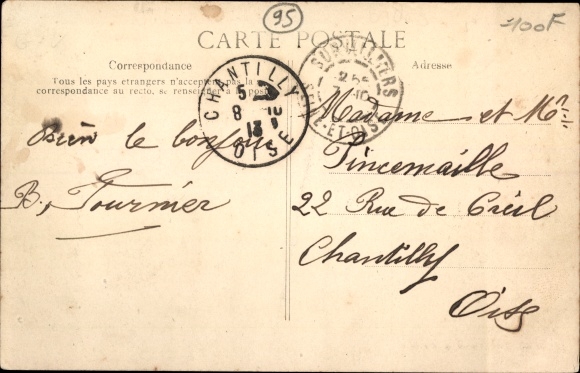 95
100F
CARTE POSTALE
Correspondance
Tous les pays étrangers n'acceptent pas la
correspondance au recto, se renseigner à la poste
Adresse
CHANTILLY
5
8 -10
13
OISE
7 -10
ET-OISE
Bien le bonjour
B. Fournier
Madame et Mr
Pincemaille
22 Rue de Creil
Chantilly
Oise